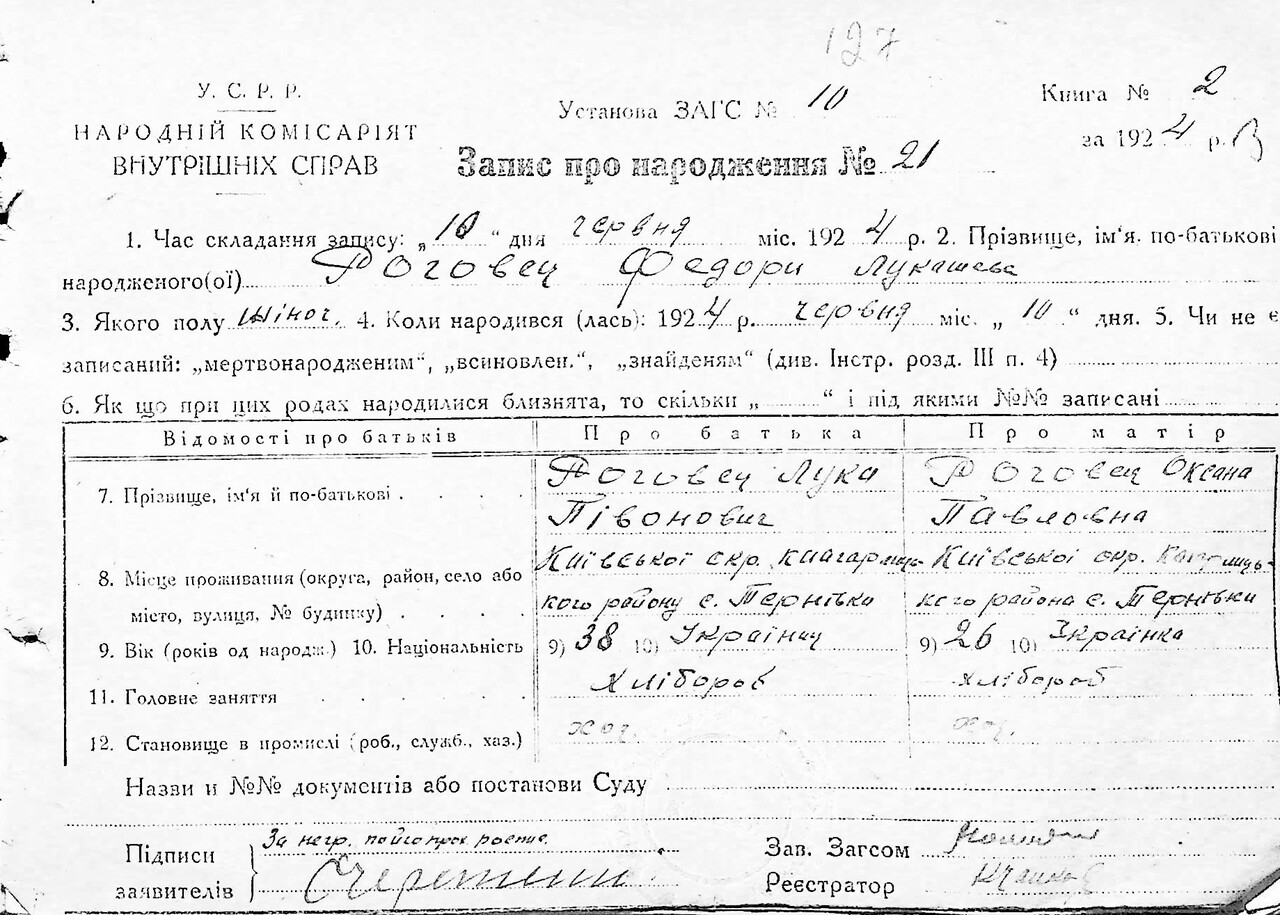 127
У. С. Р. Р.
НАРОДНІЙ КОМІСАРІЯТ
ВНУТРІШНІХ СПРАВ
Установа ЗАГС № 10
Запис про народження № 21
Книга № 2
за 1924 р.
1. Час складання запису: „10“ дня червня міс. 1924 р. 2. Прізвище, ім'я, по-батькові
народженого(ої) Роговец Федори Лукашева
3. Якого полу жіноч. 4. Коли народився (лась): 1924 р. червня міс. „10“ дня. 5. Чи не є
записаний: „мертвонародженим“, „всиновлен.“, „знайденям“ (див. Інстр. розд. III п. 4)
6. Як що при цих родах народилися близнята, то скільки „ “ і під якими №№ записані
Відомості про батьків Про батька Про матір
7. Прізвище, ім'я й по-батькові Роговец Лука Роговец Оксана
Півонович Павловна
8. Місце проживання (округа, район, село або Київської окр. Київської окр.
місто, вулиця, № будинку) кого району с. Тернівка кого района с. Тернівка
9. Вік (років од народж.) 10. Національність 9) 38 10) Українец 9) 26 10) Українка
11. Головне заняття Хлібороб хлібороб
12. Становище в промислі (роб., служб., хаз.) хоз. хоз.
Назви и №№ документів або постанови Суду
Підписи За негр.
заявителів
Зав. Загсом
Реєстратор